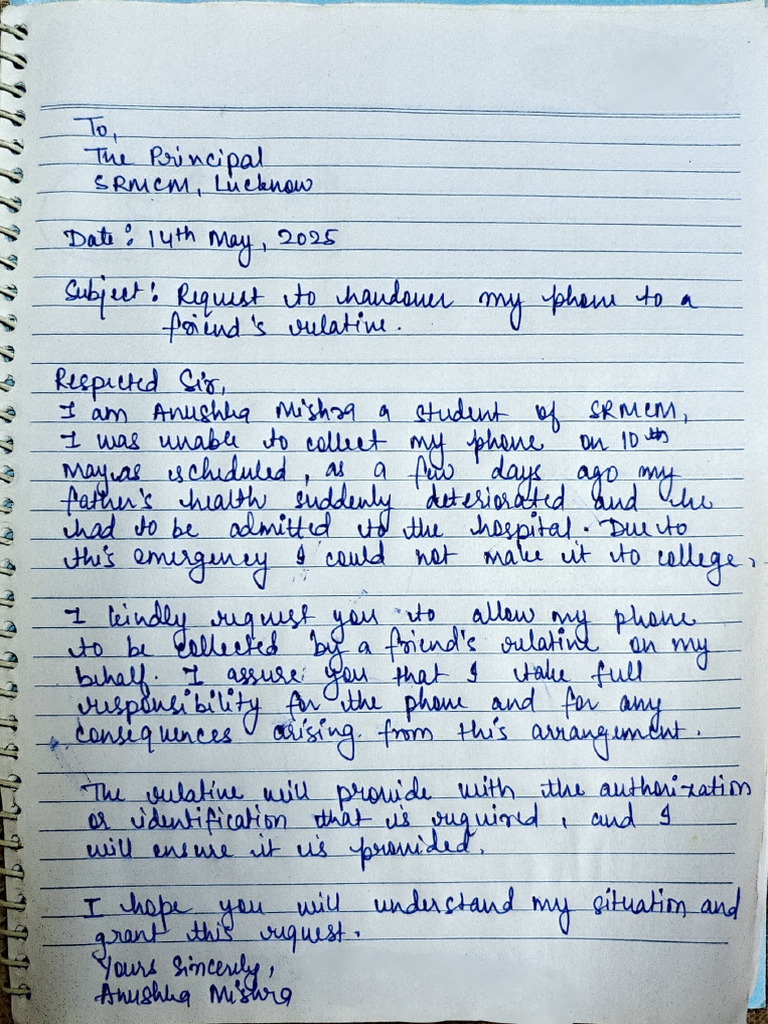 To,
The Principal
SRMCM, Lucknow
Date: 14th May, 2025
Subject: Request to handover my phone to a
friend's relative.
Respected Sir,
I am Anushka Mishra a student of SRMCM,
I was unable to collect my phone on 10th
May as scheduled, as a few days ago my
father's health suddenly deteriorated and he
had to be admitted to the hospital. Due to
this emergency I could not make it to college.
I kindly request you to allow my phone
to be collected by a friend's relative on my
behalf. I assure you that I take full
responsibility for the phone and for any
consequences arising from this arrangement.
The relative will provide with the authorization
or identification that is required, and I
will ensure it is provided.
I hope you will understand my situation and
grant this request.
Yours Sincerely,
Anushka Mishra